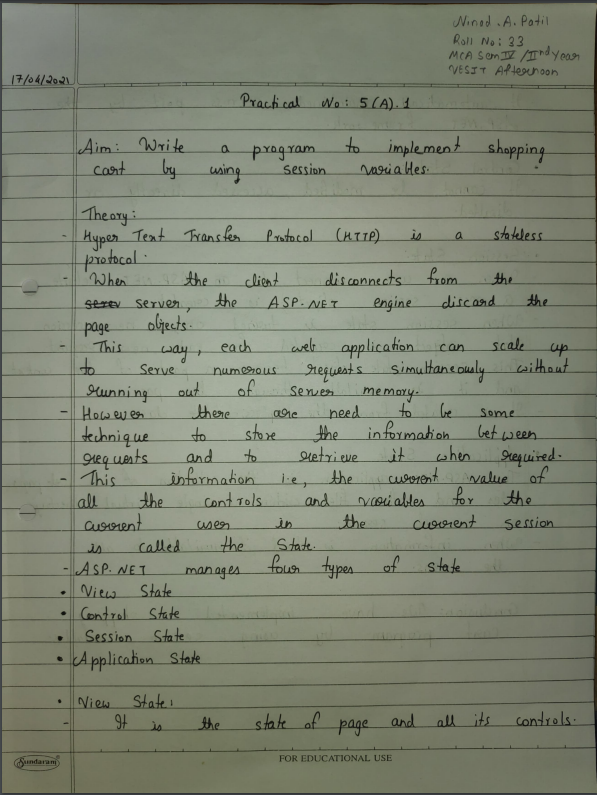 Ninad .A. Patil
Roll No: 33
MCA Sem IV / IInd Year
VESIT Afternoon
17/04/2021
Practical No: 5(A).1
Aim: Write a program to implement shopping
cart by using session variables.
Theory:
- Hyper Text Transfer Protocol (HTTP) is a stateless
protocol.
- When the client disconnects from the
server, the ASP.NET engine discard the
page objects.
- This way, each web application can scale up
to serve numerous requests simultaneously without
running out of server memory.
- However there are need to be some
technique to store the information between
requests and to retrieve it when required.
- This information i.e, the current value of
all the controls and variables for the
current user in the current session
is called the State.
- ASP.NET manages four types of state
• View State
• Control State
• Session State
• Application State
• View State:
- It is the state of page and all its controls.
Sundaram
FOR EDUCATIONAL USE